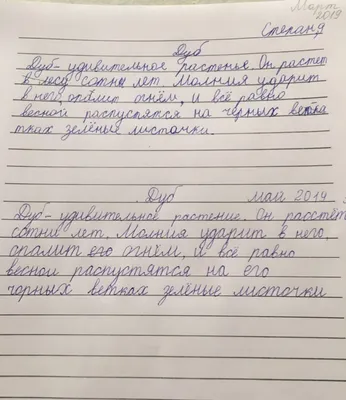 Март
2019
Степан Я
Дуб
Дуб- удивительное растенье. Он растет
в лесу сотни лет. Молния ударит
в него, опалит огнём, и всё равно
весной распустятся на чёрных ветка
тках зелёные листочки.
Дуб май 2019
Дуб- удивительное растение. Он расстёт
сотни лет. Молния ударит в него,
спалит его огнём, и всё равно
весной распустятся на его
чорных ветках зелёные листочки